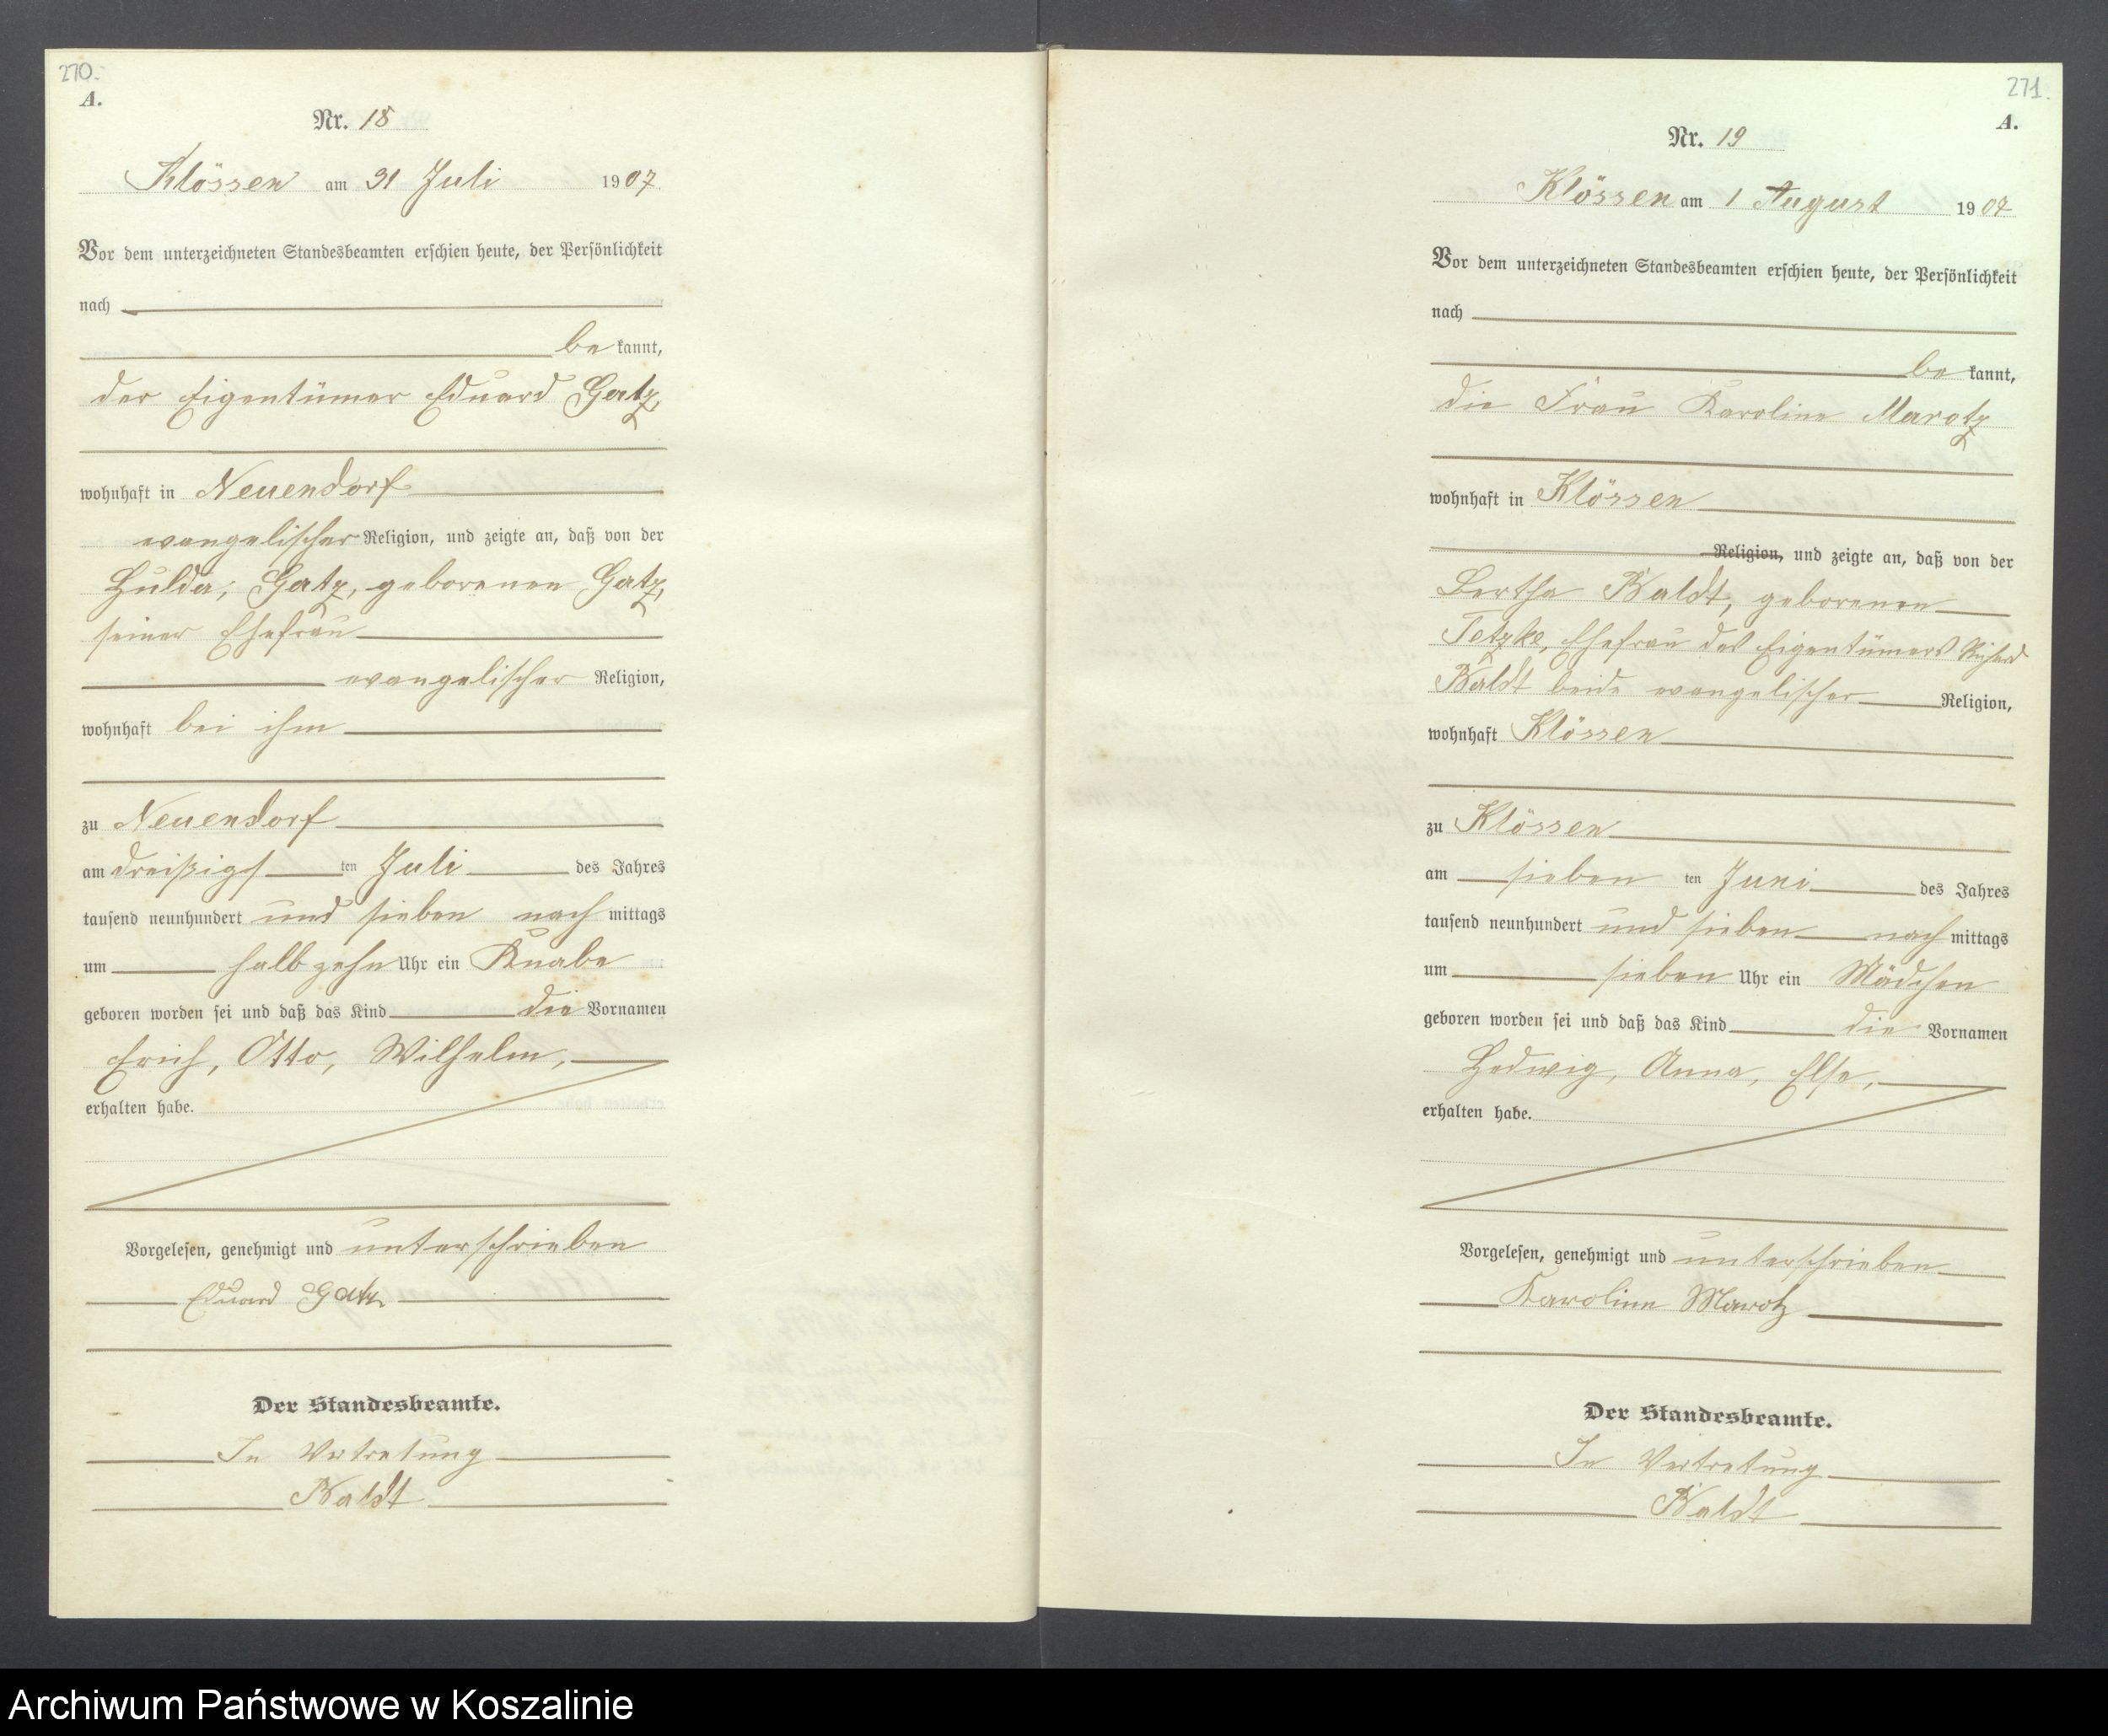 270.
A.
Nr. 18
Klössen am 31 Juli 1907.
Vor dem unterzeichneten Standesbeamten erschien heute, der Persönlichkeit
nach
be kannt,
der Eigentümer Eduard Gatz,
wohnhaft in Neuendorf
evangelischer Religion, und zeigte an, daß von der
Hulda, Gatz, geborenen Gatz,
seiner Ehefrau
evangelischer Religion,
wohnhaft bei ihm
zu Neuendorf
am dreißigs ten Juli des Jahres
tausend neunhundert und sieben nach mittags
um halb zehn Uhr ein Knabe
geboren worden sei und daß das Kind die Vornamen
Erich, Otto, Wilhelm,
erhalten habe.
Vorgelesen, genehmigt und unterschrieben
Eduard Gatz
Der Standesbeamte.
In Vertretung
Baldt
271.
A.
Nr. 19
Klössen am 1 August 1907
Vor dem unterzeichneten Standesbeamten erschien heute, der Persönlichkeit
nach
be kannt,
die Frau Karoline Marotz
wohnhaft in Klössen
Religion, und zeigte an, daß von der
Bertha Baldt, geborenen
Tetzke, Ehefrau des Eigentümers Richard
Baldt beide evangelischer Religion,
wohnhaft Klössen
zu Klössen
am sieben ten Juni des Jahres
tausend neunhundert und sieben nach mittags
um sieben Uhr ein Mädchen
geboren worden sei und daß das Kind die Vornamen
Hedwig, Anna, Else,
erhalten habe.
Vorgelesen, genehmigt und unterschrieben
Karoline Marotz
Der Standesbeamte.
In Vertretung
Baldt
Archiwum Państwowe w Koszalinie